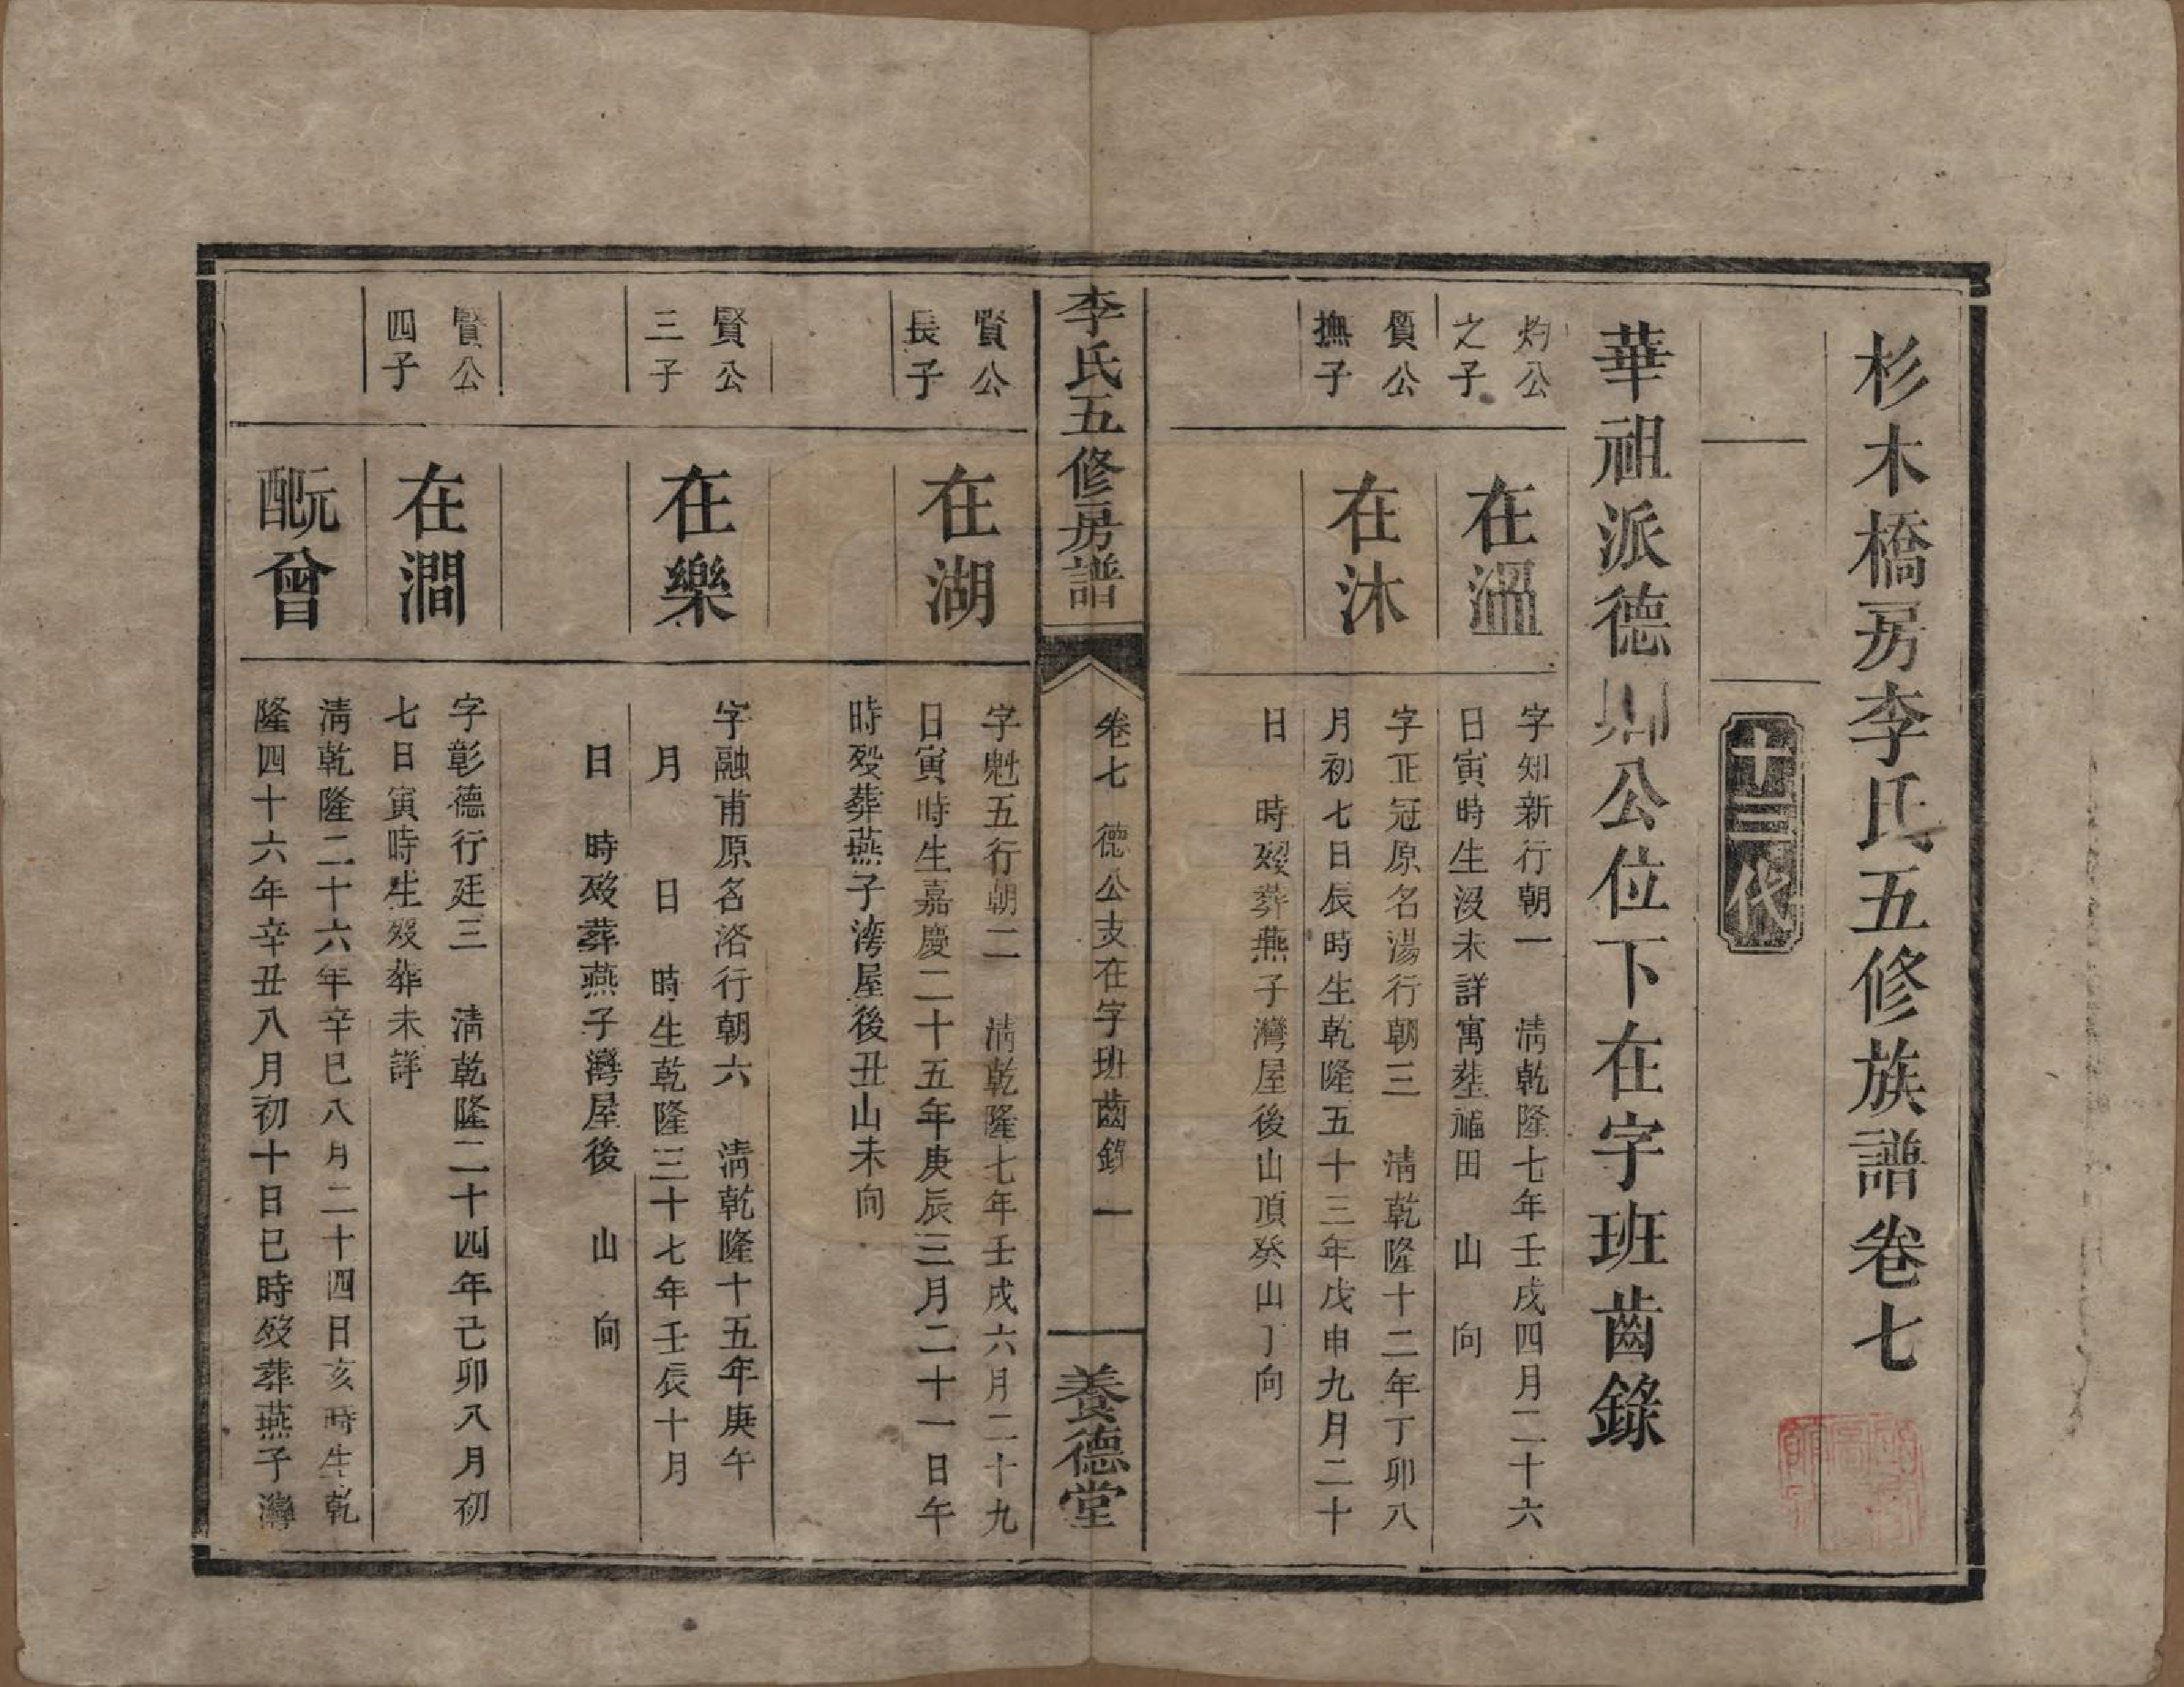 杉木橋房李氏五修族譜卷七
十三代
華祖派德公位下在字班齒錄
灼公之子
在溫
字知新行朝一 清乾隆七年壬戌四月二十六
日寅時生沒未詳寓塟福田 山 向
質公撫子
在沐
字正冠原名湯行朝三 清乾隆十二年丁卯八
月初七日辰時生乾隆五十三年戊申九月二十
日 時歿葬燕子灣屋後山頂癸山丁向
李氏五修房譜
卷七 德公支在字班齒錄 一
養德堂
賢公長子
在湖
字魁五行朝二 清乾隆七年壬戌六月二十九
日寅時生嘉慶二十五年庚辰三月二十一日午
時歿葬燕子灣屋後丑山未向
賢公三子
在樂
字融甫原名洛行朝六 清乾隆十五年庚午
月 日 時生乾隆三十七年壬辰十月
日 時歿葬燕子灣屋後 山 向
賢公四子
在澗
字彰德行廷三 清乾隆二十四年己卯八月初
七日寅時生歿葬未詳
配阮曾
清乾隆二十六年辛巳八月二十四日亥時生乾
隆四十六年辛丑八月初十日巳時歿葬燕子灣